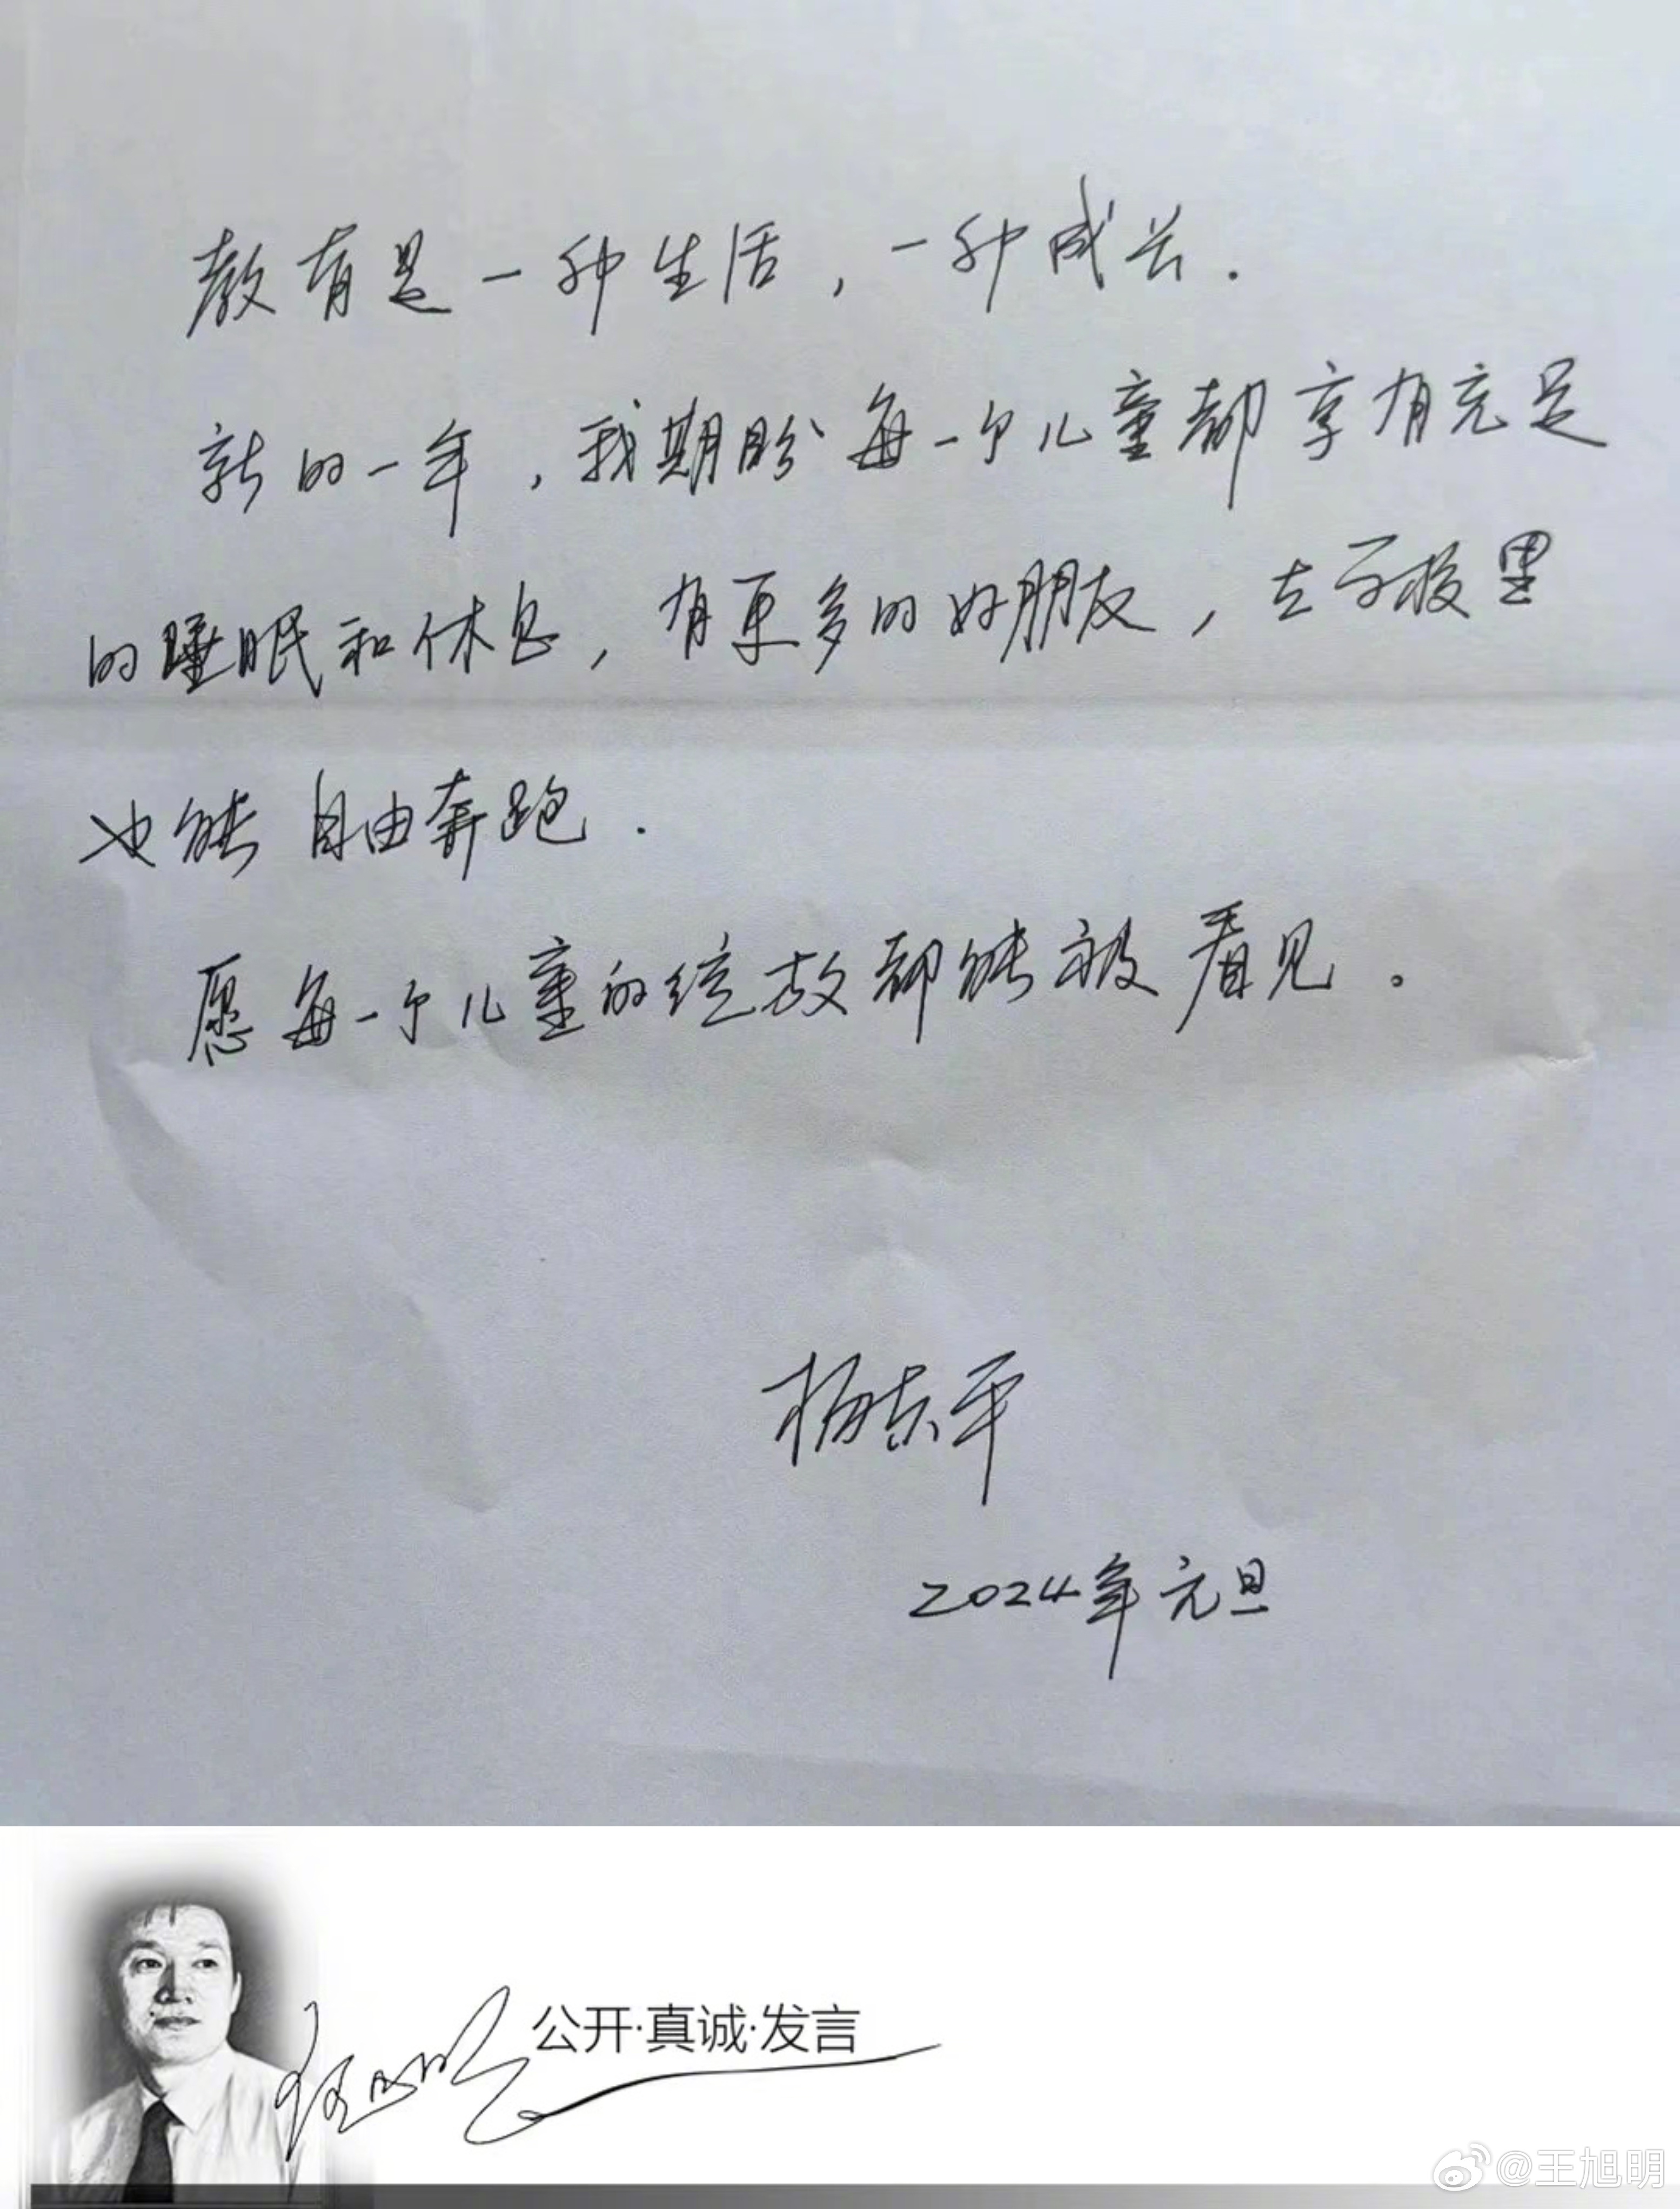 教育是一种生活，一种成长.
新的一年，我期盼每一个儿童都享有充足
的睡眠和休息，有更多的好朋友，在学校里
也能自由奔跑.
愿每一个儿童的绽放都能被看见。
杨东平
2024年元旦
王旭明
公开·真诚·发言
@王旭明